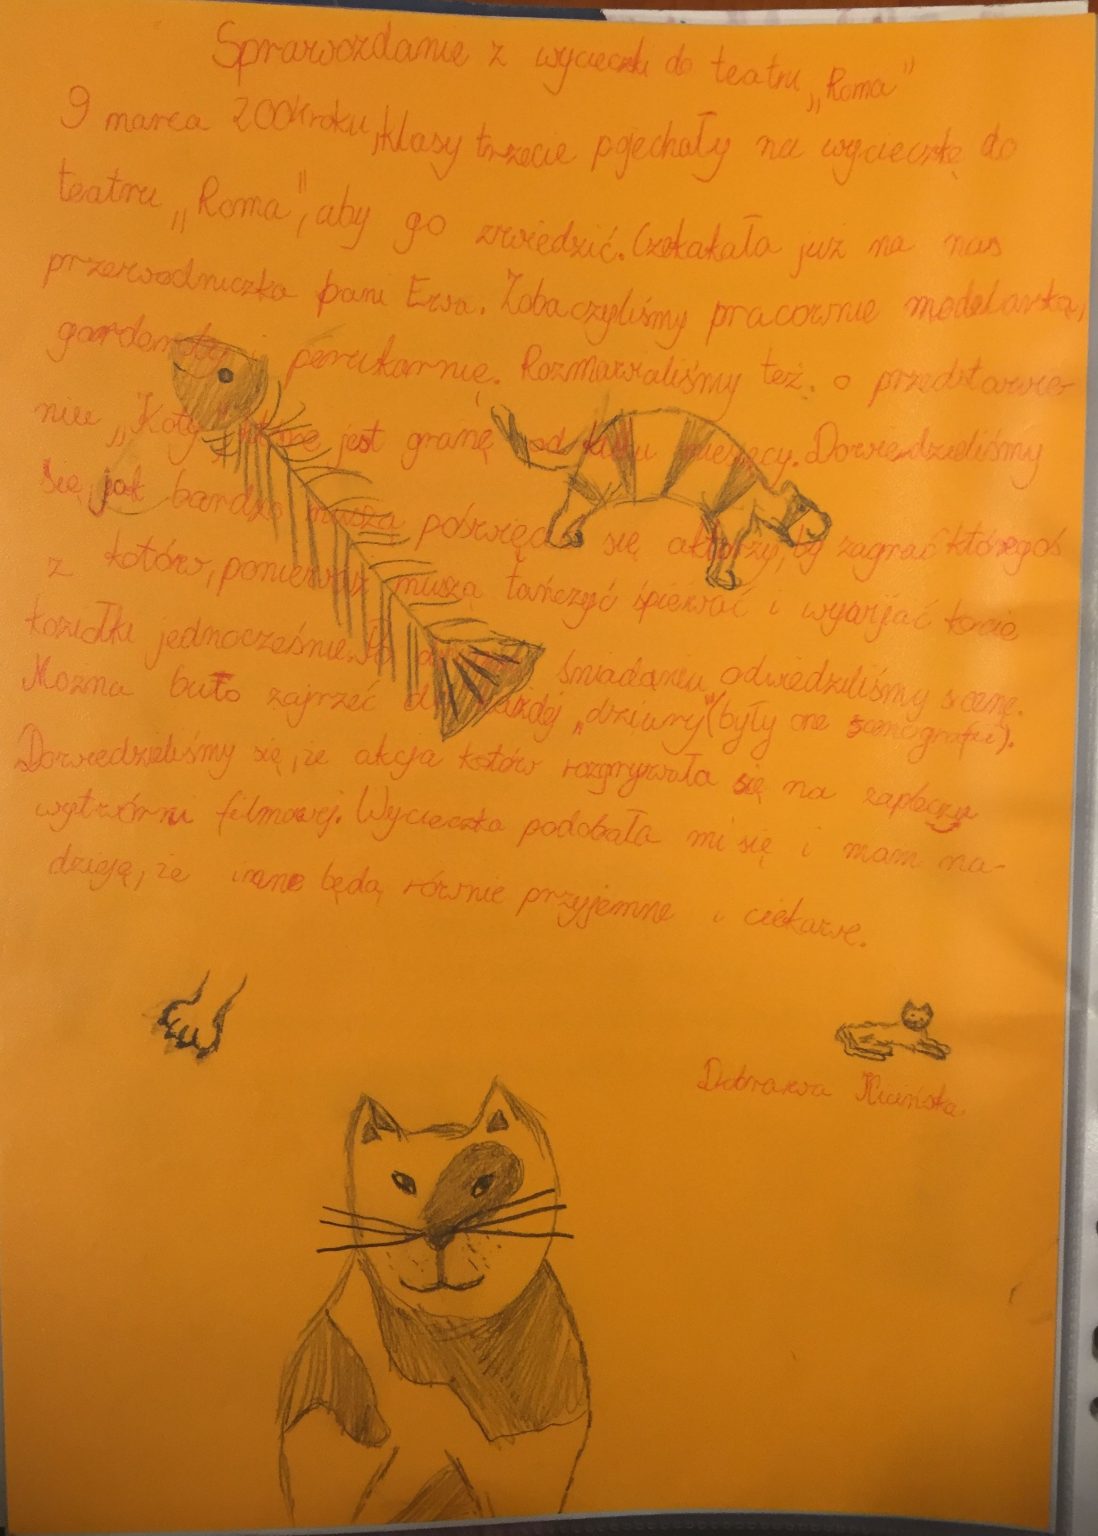 Sprawozdanie z wycieczki do teatru „Roma"
9 marca 2004 roku, klasy trzecie pojechały na wycieczkę do
teatru „Roma", aby go zwiedzić. Czekakała już na nas
przewodniczka pani Ewa. Zobaczyliśmy pracownie modelarską,
garderobę i perukarnię. Rozmawialiśmy też o przedstawie-
niu „Koty", które jest granę od kilku miesięcy. Dowiedzieliśmy
się, jak bardzo muszą poświęcać się aktorzy, by zagrać któregoś
z kotów, ponieważ muszą tańczyć śpiewać i wywijać kocie
koziołki jednocześnie. Po śniadaniu odwiedziliśmy scenę.
Można było zajrzeć do każdej „dziury" (były one scenografii).
Dowiedzieliśmy się, że akcja kotów rozgrywała się na zapleczu
wytwórni filmowej. Wycieczka podobała mi się i mam na-
dzieję, że inne będą równie przyjemne i ciekawe.
Dobrawa Kicińska